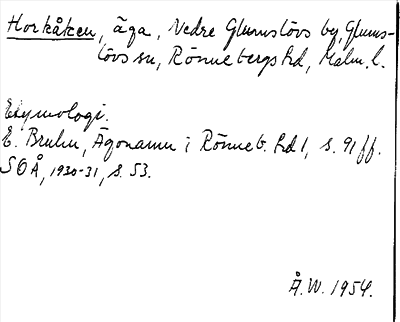 Horkåken, äga, Nedre Glumslövs by, Glums-
lövs sn, Rönnebergs hd, Malm. l.
Etymologi.
E. Bruhn, Ägonamn i Rönneb. hd 1, s. 91 ff.
SOÅ, 1930-31, s. 53.
Å.W. 1954.